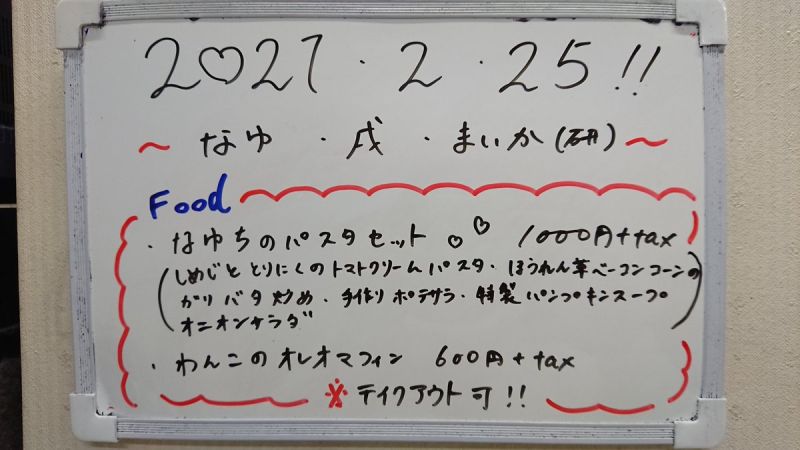 2♡21・2・25!!
～なゆ・戌・まいか(研)～
Food
・なゆちのパスタセット♡♡ 1000円+tax
(しめじととりにくのトマトクリームパスタ・ほうれん草ベーコンコーンの
ガリバタ炒め・手作りポテサラ・特製パンプキンスープ
オニオンサラダ)
・わんこのオレオマフィン 600円+tax
※テイクアウト可!!